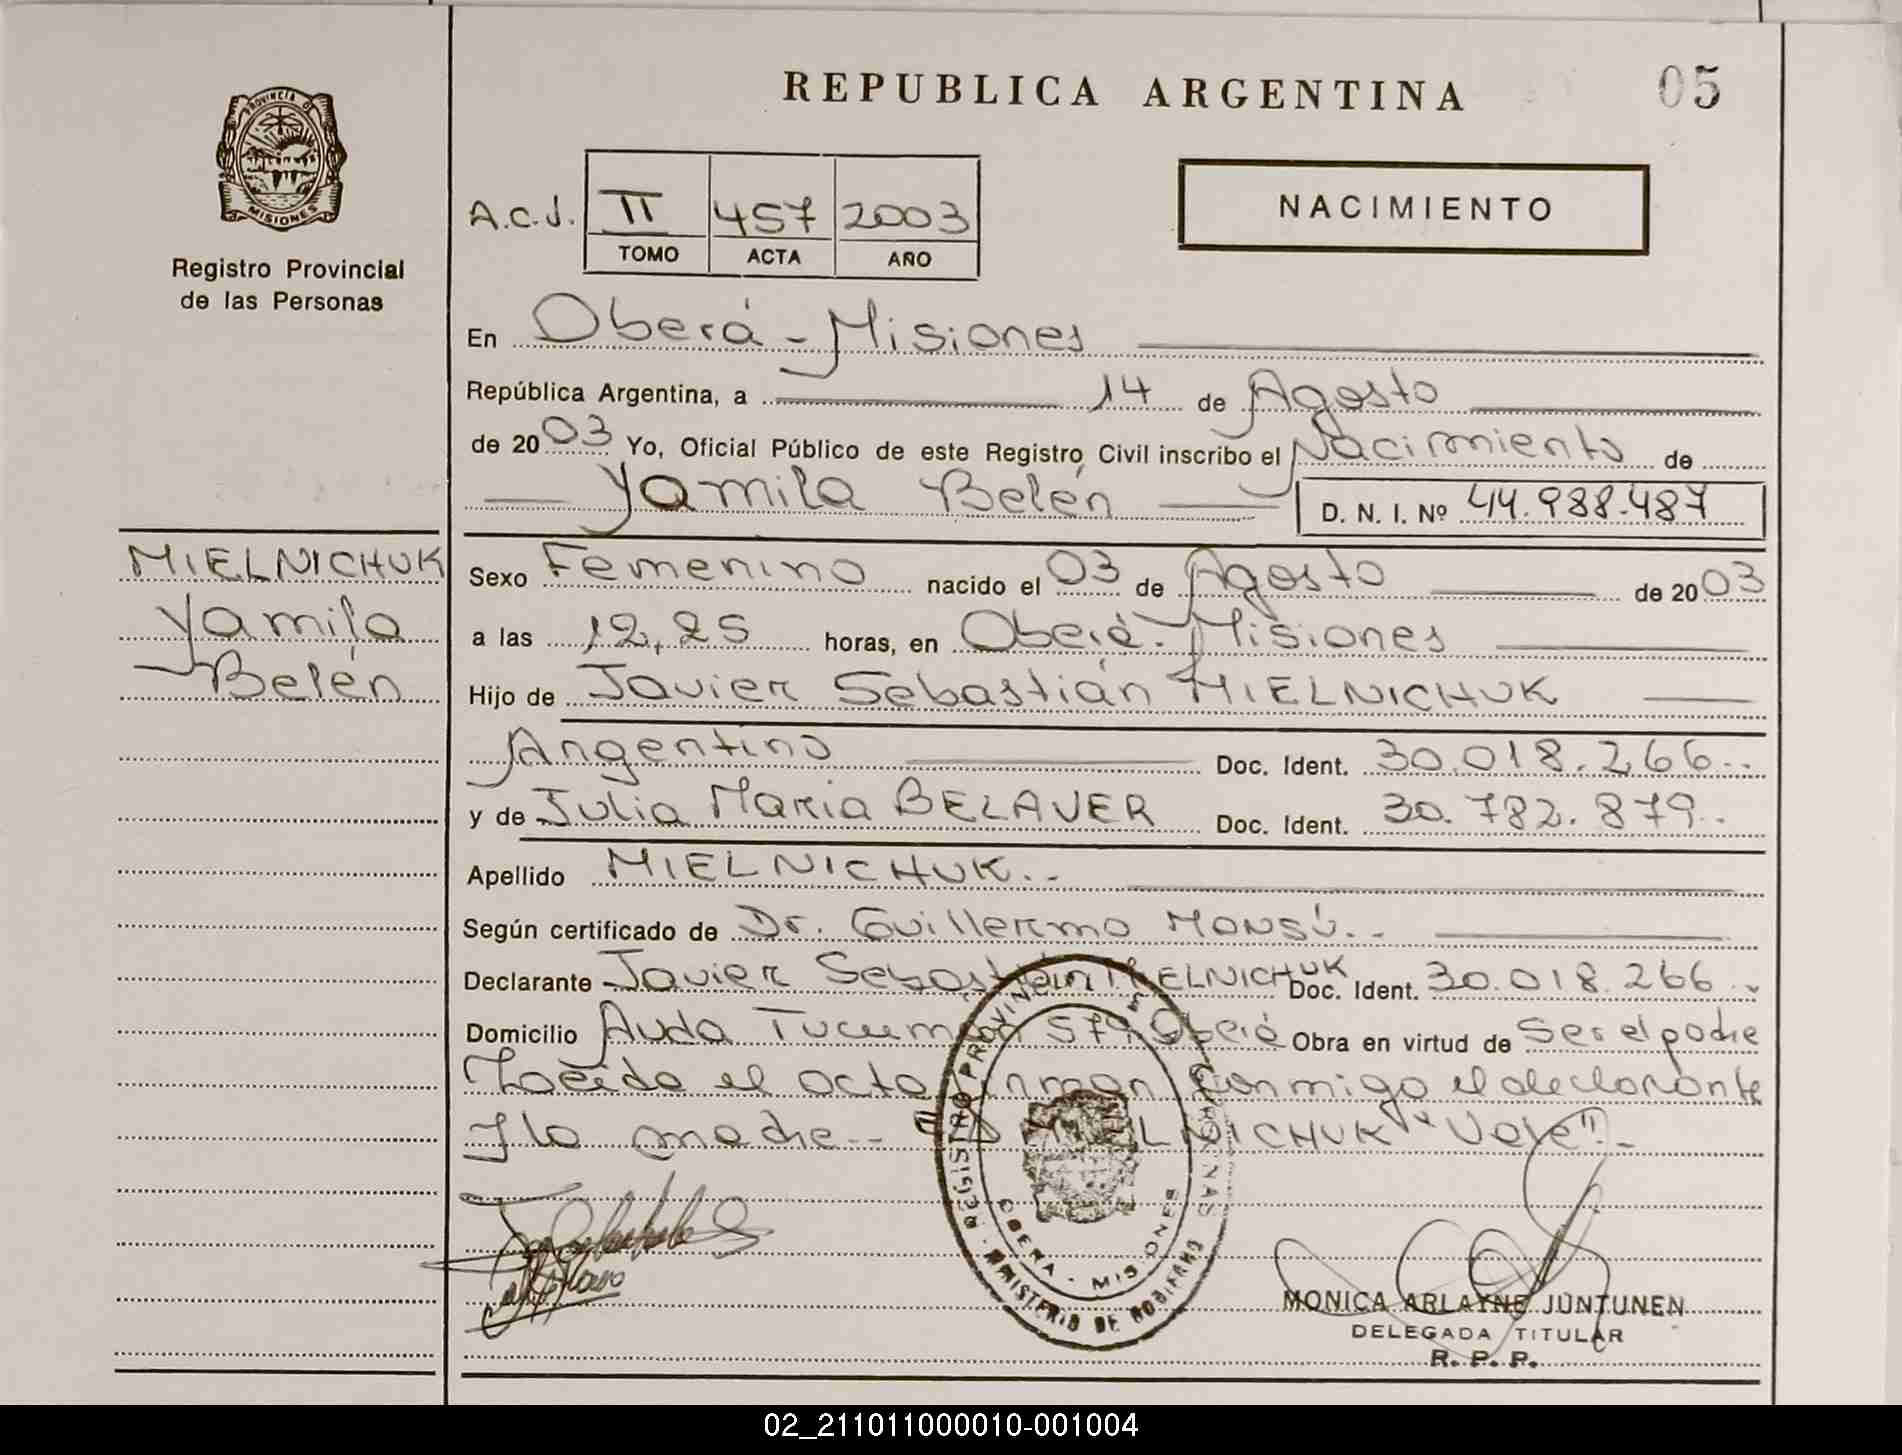 REPUBLICA ARGENTINA
05
PROVINCIA DE
MISIONES
Registro Provincial
de las Personas
A.C.J. II 457 2003
TOMO ACTA AÑO
NACIMIENTO
En Oberá - Misiones
República Argentina, a 14 de Agosto
de 2003 Yo, Oficial Público de este Registro Civil inscribo el Nacimiento de
Yamila Belén D. N. I. Nº 44.988.487
MIELNICHUK
Yamila
Belén
Sexo Femenino nacido el 03 de Agosto de 2003
a las 12,25 horas, en Oberá - Misiones
Hijo de Javier Sebastián MIELNICHUK
Argentino Doc. Ident. 30.018.266..
y de Julia Maria BELAVER Doc. Ident. 30.782.879..
Apellido MIELNICHUK..
Según certificado de Dr. Guillermo MONSÚ..
Declarante Javier Sebastián MIELNICHUK Doc. Ident. 30.018.266..
Domicilio Avda Tucumán 579 Oberá Obra en virtud de Ser el padre
el acto firman conmigo el declarante
y la madre.. MIELNICHUK "Vale".-
REGISTRO PROVINCIAL DE LAS PERSONAS
OBERA - MISIONES
MINISTERIO DE GOBIERNO
MONICA ARLAYNE JUNTUNEN
DELEGADA TITULAR
R. P. P.
02_211011000010-001004